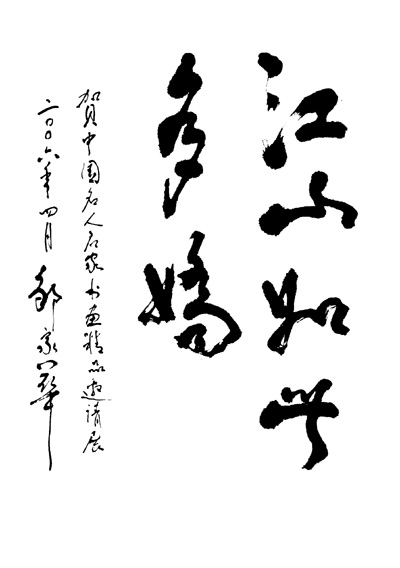 江山如此
多嬌
贺中国名人名家书画精品邀请展
二〇〇六年四月 鄒家華